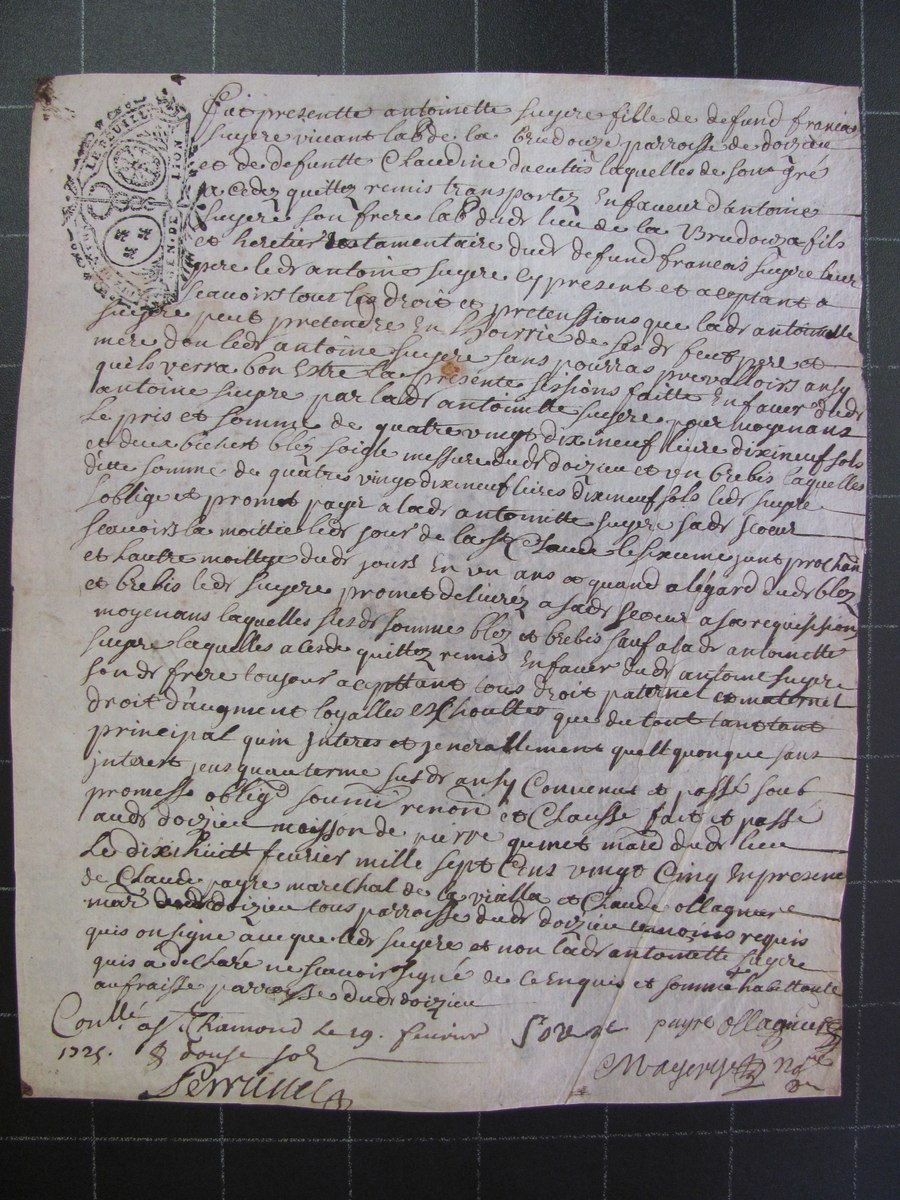 fut presentte antoinette suyere fille de defund francois
suyere vivant labr de la brudouze parroisse de doizieu
et de defuntte Claudine laquelles de son gré
a cedez quettez remis transportez En faveur d'antoine
suyere son frere labr dudt lieu de la Brudouza fils
et heretier testamentaire dudt defund francois suyere leur
pere ledt antoine suyere Cy present et aceptant a
scavoirs tous les droit et pretenssions que ladt antoinette
suyere peut pretendre En hoirrie de sesdt feut pere et
mere don ledt antoine suyere sans pourras prevalloirs ainsy
quils verra bon Estre La presente sessions faitte En faver dudt
antoine suyere par ladt antoinette suyere pour moyenans
Le pris et somme de quatre vingt dixneuf livre dixneuf sols
et deux bichet blez soigle messure dudt doizieu et un brebis laquelles
ditte somme de quatres vingt dixneuf livres dixneuf sols ledt suyere
soblige et promet payer a ladt antoinette suyere sadt soeur
scavoirs la moittie ledt jour de la st Claude le sixieme juns prochain
et lautre moittye dudt jours En un ans et quand a légard dudt blez
et brebis ledt suyere promet delivrez a sadt soeur a sa requission
moyenans laquelles susdt somme blez et brebis sauf a ladt antoinette
suyere laquelles a cede quettez remis En faver dudt antoine suyere
son dt frere toujour aceptant tous droit paternel et maternel
droit d'augment loyalles eschouttes que de tout tant tant
principal quin jnteres et jenerallement quelquonque sans
jnterest jeusquau terme susdt ainsy Convenus et passé soub
promesse obligon soumion renonon et Clausse fait et passé
audt doizieu maisson de pierre quinet mard dudt lieu
Le dixhuitt fevrier mille sept Cens vingt Cinq En presene
de Claude payre marelhal de la vialla et Claude ollagnier
mar dudt doizieu tous parroisse dudt doizieu temoins requis
quis on signe avec que ledt suyere et non ladt antoinette suyere
quis a declare ne scavoir signé de ce Enquis et sommé habittante
au fraisse parroisse dudt doizieu
payre ollagnier
Conllé a st Chamond Le 19 fevrier
1725. R douse sols
LE FEUILLE
GEN DE LION